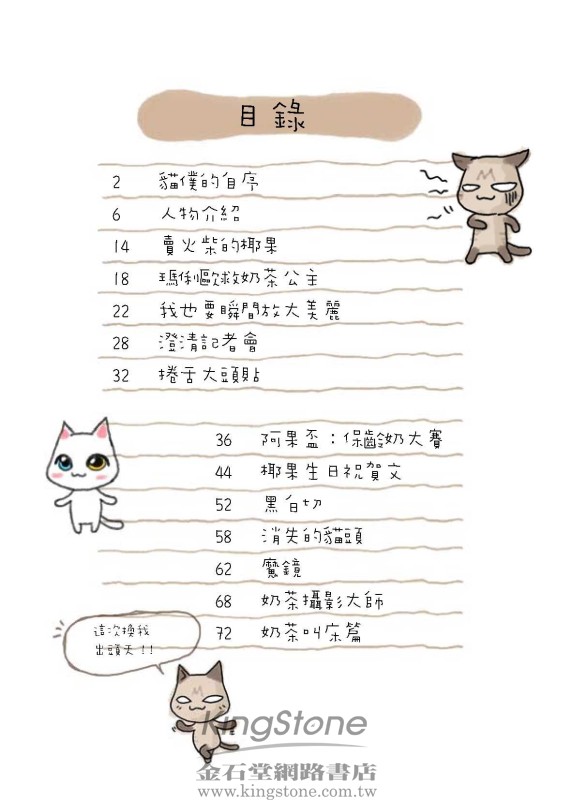 目錄
2 貓僕的自序
6 人物介紹
14 賣火柴的椰果
18 瑪俐歐救奶茶公主
22 我也要瞬間放大美麗
28 澄清記者會
32 捲舌大頭貼
36 阿果盃：保齡奶大賽
44 椰果生日祝賀文
52 黑白切
58 消失的貓頭
62 魔鏡
68 奶茶攝影大師
72 奶茶叫床篇
這次換我
出頭天!!
KingStone
金石堂網路書店
www.kingstone.com.tw